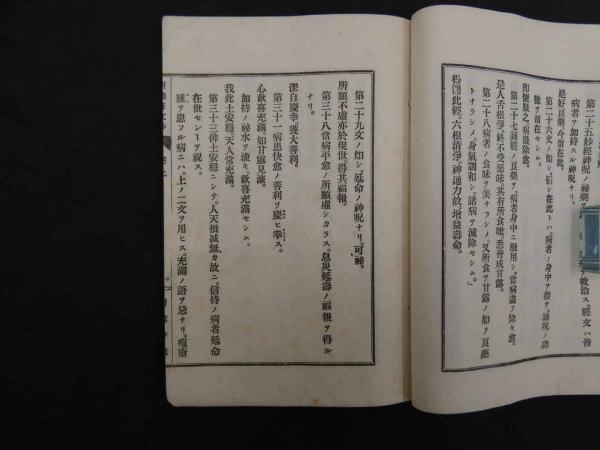 第二十五妙經神呪ノ祕藥ヲ
救治ス。經文ハ皆
病者ヲ加持スル神呪ナリ。
是好良藥、今留在此、
第二十六文ノ如シ。但シ在此トハ。病者ノ身中ヲ指ヲ。誦呪ノ功
德ヲ留在セシム。
即便服之、病盡除愈、
第二十七誦經ノ良藥ヲ。病者身中ニ服用シ。當病盡ヲ除キ愈。
是人舌根淨、終不受惡味、其有所食噉、悉皆成甘露、
第二十八病者ノ食味ヲ美ナラシメ。又所食ヲ甘露ノ如ヲ良藥
トナラシメ。身氣調和シ。諸病ヲ滅除セシム。
得聞此經、六根清淨、神通力故、增益壽命。
第二十九文ノ如シ。延命ノ神呪ナリ。可祕。
所願不虛、亦於現世、得其福報。
第三十八當病平愈ノ所願虛シカラス。息災延壽ノ福報ヲ得ル
ナリ。
深自慶幸、獲大善利、
第三十一病患快愈ノ善利ヲ慶ヒ幸ス。
心歡喜充滿、如甘露見灌、
加持ノ祕水ヲ灌キ。歡喜充滿セシム。
我此土安穩、天人常充滿。
第三十三佛土安穩ニシテ。人天損減無カ故ニ。信持ノ病者延命
在世セシ｜ヲ祝ス。
腫ヲ患フル病ニハ。上ノ二文ヲ用ヒス。充滿ノ語ヲ忌ナリ。疱瘡